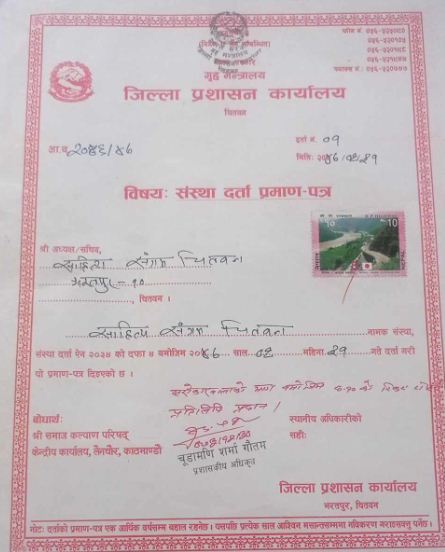 फोन नं. ०५६-५२५०८०
गृह मन्त्रालय
जिल्ला प्रशासन कार्यालय
चितवन
आ.व. २०४६/४७
दर्ता नं. ०१
मिति: २०४६/०४/२१
विषय: संस्था दर्ता प्रमाण-पत्र
श्री अध्यक्ष/सचिव,
साहित्य संगम चितवन
भरतपुर-१०
, चितवन ।
साहित्य संगम चितवन नामक संस्था,
संस्था दर्ता ऐन २०३४ को दफा ४ बमोजिम २०४६ साल ०४ महिना २१ गते दर्ता गरी
यो प्रमाण-पत्र दिइएको छ ।
प्रतिलिपि प्रदान ।
बोधार्थ:
श्री समाज कल्याण परिषद्
केन्द्रीय कार्यालय, लैनचौर, काठमाण्डौ
चूडामणि शर्मा गौतम
प्रशासकीय अधिकृत
स्थानीय अधिकारीको
सही:
जिल्ला प्रशासन कार्यालय
भरतपुर, चितवन
नोट: दर्ताको प्रमाण-पत्र एक आर्थिक वर्षसम्म बहाल रहनेछ । त्यसपछि प्रत्येक साल आश्विन मसान्तसम्ममा नविकरण गराउनुपर्नेछ ।